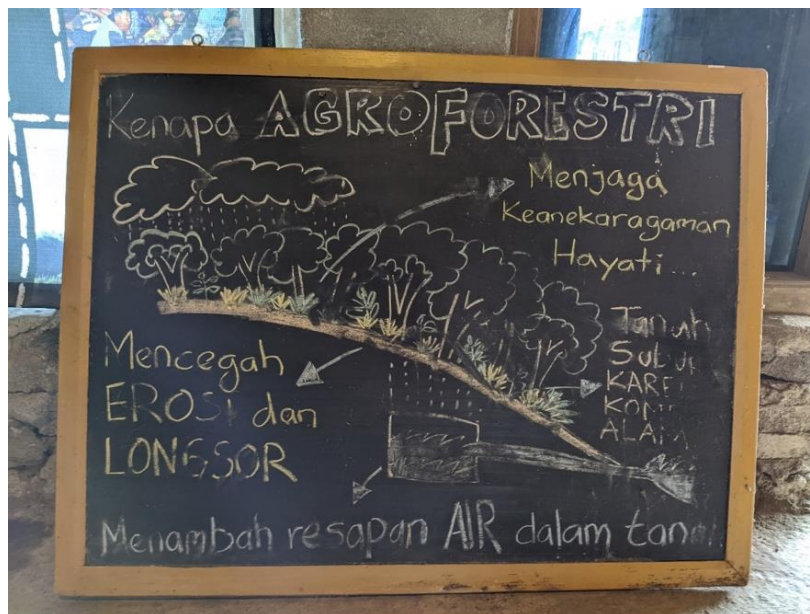 Kenapa AGROFORESTRI
Menjaga
Keanekaragaman
Hayati...
Mencegah
EROSI dan
LONGSOR
Tanah
Subur
Menambah resapan AIR dalam